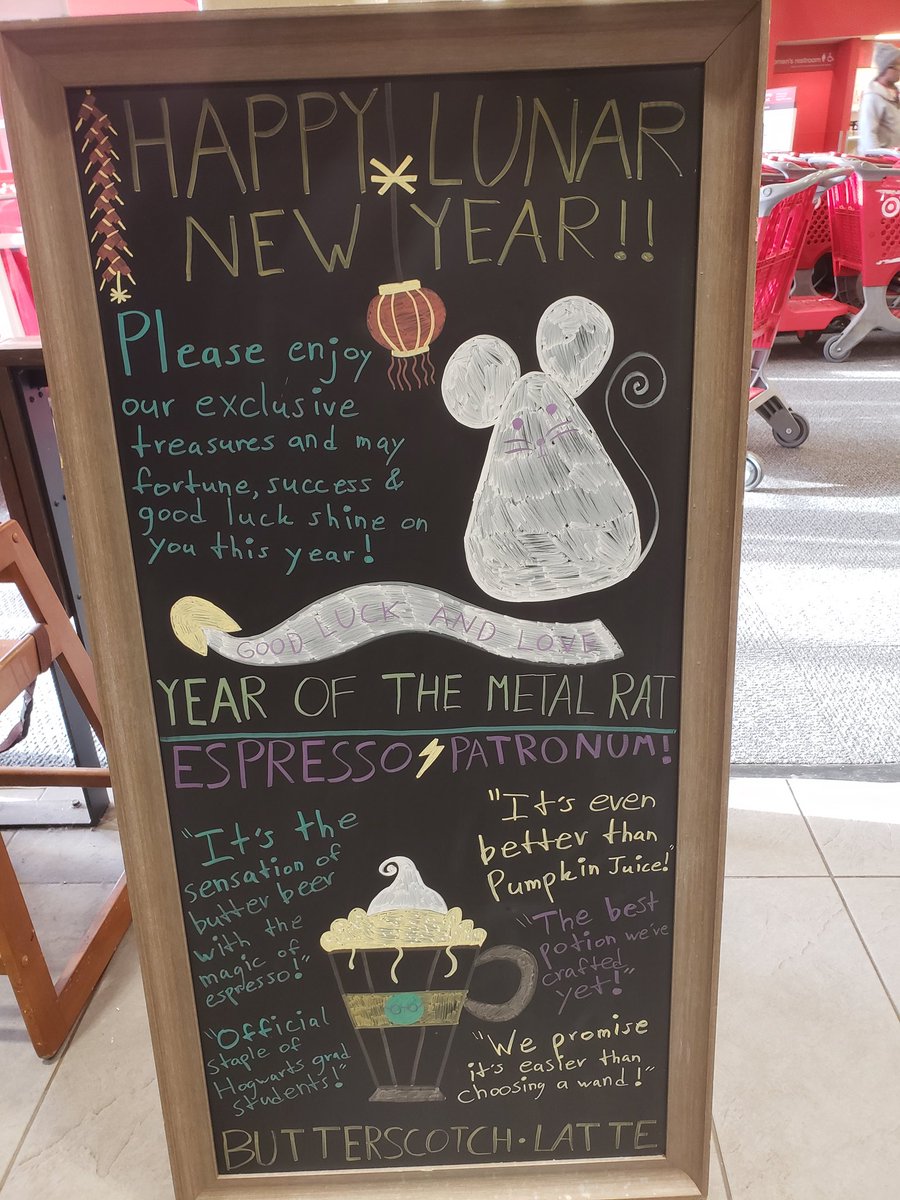 HAPPY LUNAR
NEW YEAR!!
Please enjoy
our exclusive
treasures and may
fortune, success &
good luck shine on
you this year!
GOOD LUCK AND LOVE
YEAR OF THE METAL RAT
ESPRESSO⚡PATRONUM!
"It's the
sensation of
butter beer
with the
magic of
espresso!"
"It's even
better than
Pumpkin Juice!"
"The best
potion we've
crafted
yet!"
"Official
staple of
Hogwarts grad
students!"
"We promise
it's easier than
choosing a wand!"
BUTTERSCOTCH·LATTE
women's restroom